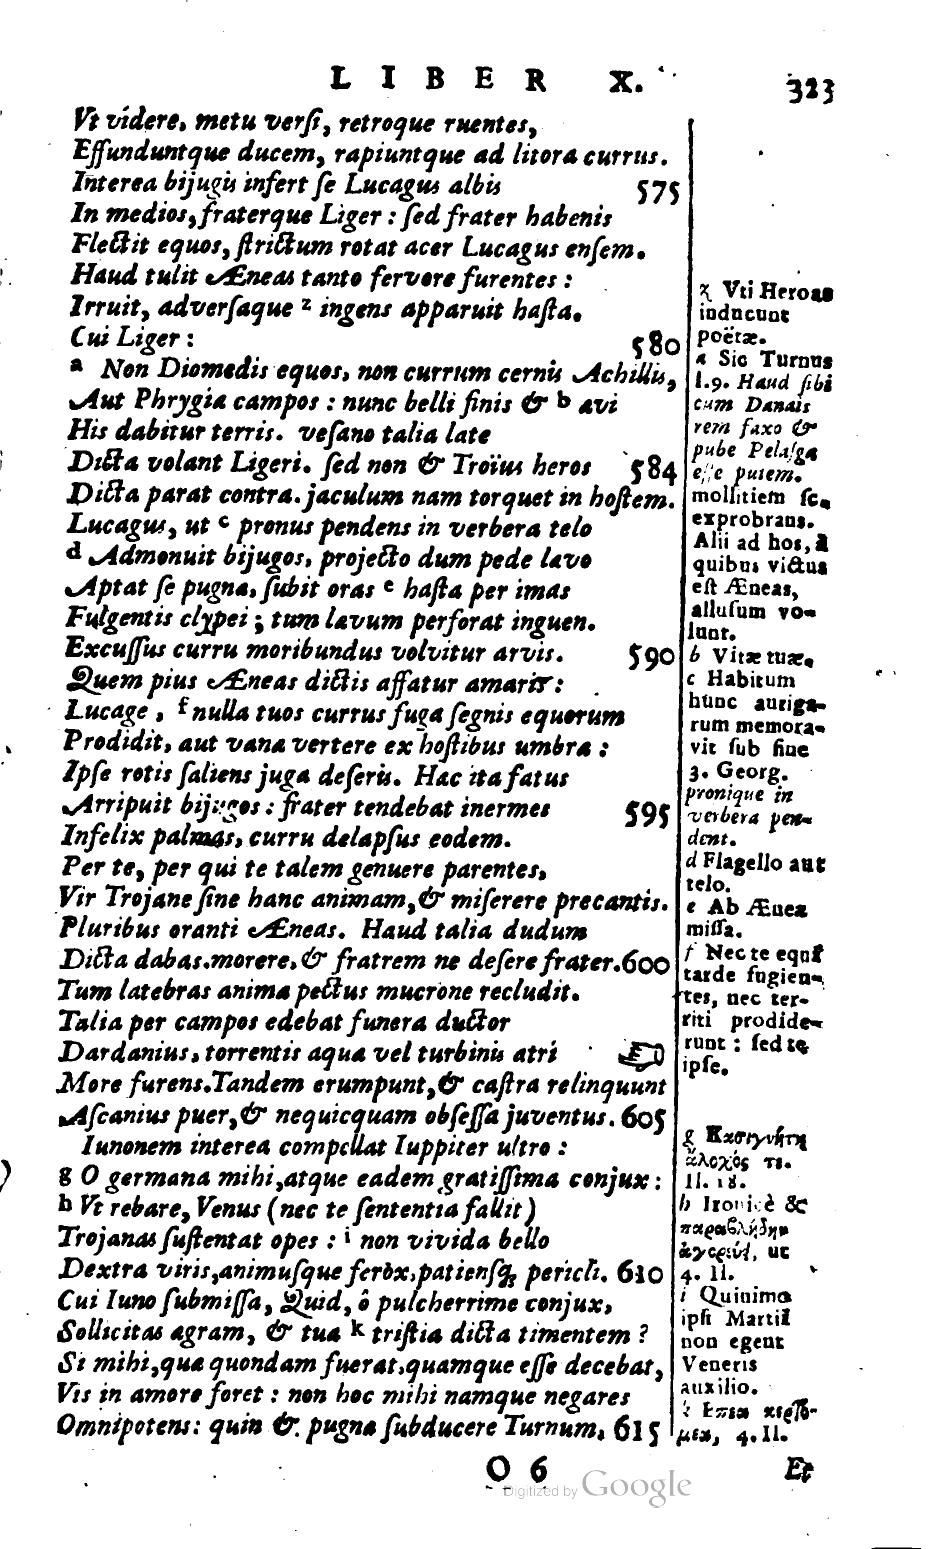 LIBER X. 323
Vt vidére, metu verſi, retroque ruentes,
Effunduntque ducem, rapiuntque ad litora currus.
Interea bijugis infert ſe Lucagus albis 575
In medios, fraterque Liger : ſed frater habenis
Flectit equos, ſtrictum rotat acer Lucagus enſem.
Haud tulit Æneas tanto fervore furentes :
Irruit, adverſaque z ingens apparuit haſta.
Cui Liger : 580
a Non Diomedis equos, non currum cernis Achillis,
Aut Phrygia campos : nunc belli finis & b avi
His dabitur terris. veſano talia late
Dicta volant Ligeri. ſed non & Troïus heros 584
Dicta parat contra. jaculum nam torquet in hoſtem.
Lucagus, ut c pronus pendens in verbera telo
d Admonuit bijugos, projecto dum pede lavo
Aptat ſe pugna, ſubit oras e haſta per imas
Fulgentis clypei ; tum lavum perforat inguen.
Excuſſus curru moribundus volvitur arvis. 590
Quem pius Æneas dictis affatur amaris :
Lucage, f nulla tuos currus fuga ſegnis equorum
Prodidit, aut vana vertere ex hoſtibus umbra :
Ipſe rotis ſaliens juga deſeris. Hac ita fatus
Arripuit bijugos : frater tendebat inermes 595
Infelix palmas, curru delapſus eodem.
Per te, per qui te talem genuere parentes,
Vir Trojane ſine hanc animam, & miſerere precantis.
Pluribus oranti Æneas. Haud talia dudum
Dicta dabas. morere, & fratrem ne deſere frater. 600
Tum latebras anima pectus mucrone recludit.
Talia per campos edebat funera ductor
Dardanius, torrentis aqua vel turbinis atri
More furens. Tandem erumpunt, & caſtra relinquunt
Aſcanius puer, & nequicquam obſeſſa juventus. 605
Iunonem interea compellat Iuppiter ultro :
g O germana mihi, atque eadem gratiſſima conjux :
h Vt rebare, Venus (nec te ſententia fallit)
Trojanas ſuſtentat opes : i non vivida bello
Dextra viris, animuſque ferox, patienſq; pericli. 610
Cui Iuno ſubmiſſa, Quid, ô pulcherrime conjux,
Sollicitas agram, & tua k triſtia dicta timentem ?
Si mihi, qua quondam fuerat, quamque eſſe decebat,
Vis in amore foret : non hoc mihi namque negares
Omnipotens : quin & pugna ſubducere Turnum, 615
z Vti Heroas
inducunt
poëtæ.
a Sic Turnus
l.9. Haud ſibi
cum Danais
rem faxo &
pube Pelaſga
eſſe putem.
mollitiem ſc.
exprobrans.
Alii ad hos, à
quibus victus
eſt Æneas,
alluſum vo-
lunt.
b Vitæ tuæ.
c Habitum
hunc auriga-
rum memora-
vit ſub fine
3. Georg.
pronique in
verbera pen-
dent.
d Flagello aut
telo.
e Ab Ænea
miſſa.
f Nec te equi
tarde fugien-
tes, nec ter-
riti prodide-
runt : ſed te
ipſe.
g Κασιγνήτη
ἄλοχός τε.
Il. 18.
h Ironicè &
παραβλήδην
ἀγορεύει, ut
4. Il.
i Quinimo
ipſi Martii
non egent
Veneris
auxilio.
4. Il.
O 6 Et
Digitized by Google